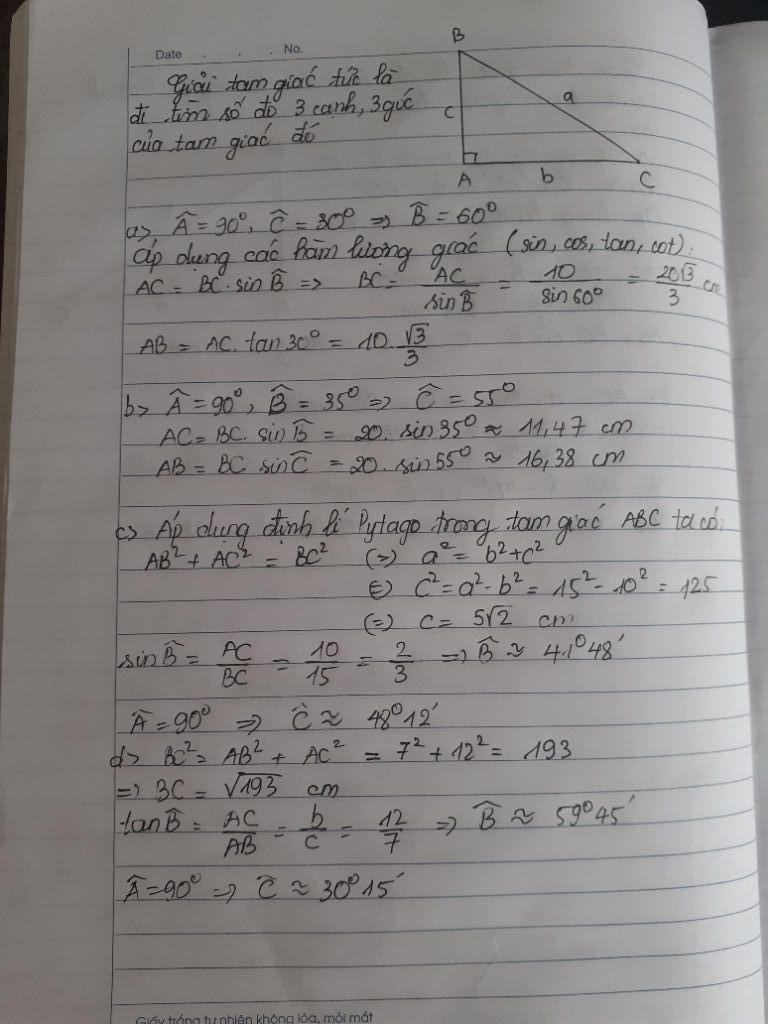 Date . . . No.
Giải tam giác tức là
đi tìm số đo 3 cạnh, 3 góc
của tam giác đó
B
c
a
A
b
C
a> Â = 90°, Ĉ = 30° => B̂ = 60°
Áp dụng các hàm lượng giác (sin, cos, tan, cot):
AC = BC . sin B̂ => BC = AC / sin B̂ = 10 / sin 60° = 20√3 / 3 cm
AB = AC . tan 30° = 10 . √3 / 3
b> Â = 90°, B̂ = 35° => Ĉ = 55°
AC = BC . sin B̂ = 20 . sin 35° ≈ 11,47 cm
AB = BC sin Ĉ = 20 . sin 55° ≈ 16,38 cm
c> Áp dụng định lí Pytago trong tam giác ABC ta có:
AB² + AC² = BC² (=> a² = b² + c²
(=) c² = a² - b² = 15² - 10² = 125
(=) c = 5√2 cm
sin B̂ = AC / BC = 10 / 15 = 2 / 3 => B̂ ≈ 41°48'
Â = 90° => Ĉ ≈ 48°12'
d> BC² = AB² + AC² = 7² + 12² = 193
=> BC = √193 cm
tan B̂ = AC / AB = b / c = 12 / 7 => B̂ ≈ 59°45'
Â = 90° => Ĉ ≈ 30°15'
Giấy trắng tự nhiên không lóa, mỏi mắt